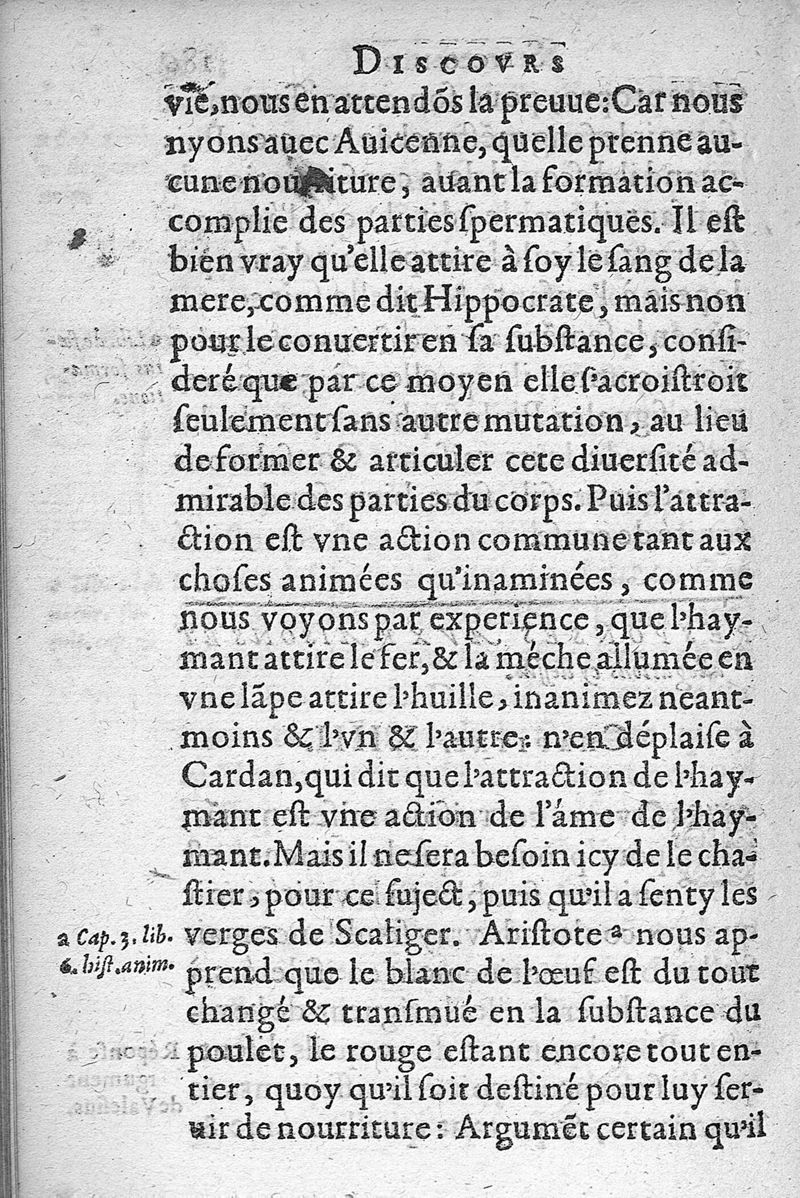 DISCOVRS
vie, nous en attendõs la preuue: Car nous
nyons auec Auicenne, quelle prenne au-
cune nourriture, auant la formation ac-
complie des parties ſpermatiques. Il eſt
bien vray qu'elle attire à ſoy le ſang de la
mere, comme dit Hippocrate, mais non
pour le conuertir en ſa ſubſtance, conſi-
deré que par ce moyen elle s'acroiſtroit
ſeulement ſans autre mutation, au lieu
de former & articuler cete diuerſité ad-
mirable des parties du corps. Puis l'attra-
ction eſt vne action commune tant aux
choſes animées qu'inaminées, comme
nous voyons par experience, que l'hay-
mant attire le fer, & la méche allumée en
vne lãpe attire l'huille, inanimez neant-
moins & l'vn & l'autre: n'en déplaiſe à
Cardan, qui dit que l'attraction de l'hay-
mant eſt vne action de l'áme de l'hay-
mant. Mais il ne ſera beſoin icy de le cha-
ſtier, pour ce ſuject, puis qu'il a ſenty les
verges de Scaliger. Ariſtote ª nous ap-
prend que le blanc de l'œuf eſt du tout
changé & tranſmué en la ſubſtance du
poulet, le rouge eſtant encore tout en-
tier, quoy qu'il ſoit deſtiné pour luy ſer-
uir de nourriture: Argumẽt certain qu'il
a Cap. 3. lib.
6. hiſt. anim.